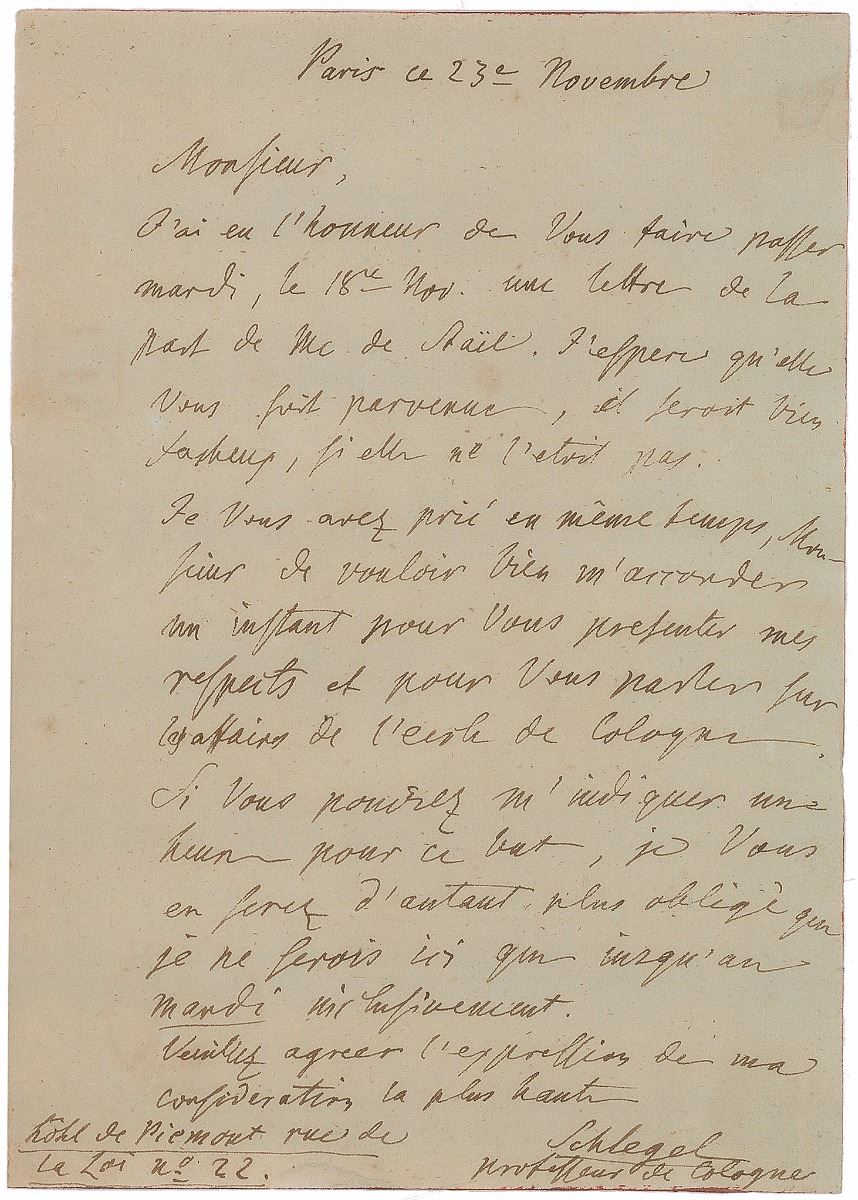 Paris ce 23e Novembre
Monsieur,
J'ai eu l'honneur de Vous faire passer
mardi, le 18re Nov. une lettre de la
part de Me de Staël. J'espere qu'elle
Vous soit parvenue, il seroit bien
facheux, si elle ne l'etoit pas.
Je Vous avez prié en même temps, Mon-
sieur de vouloir bien m'accorder
un instant pour Vous presenter mes
respects et pour Vous parler sur
les affaires de l'ecole de Cologne.
Si Vous pouvrez m'indiquer une
heure pour ce but, je Vous
en serez d'autant plus obligé que
je ne serois ici que jusqu'au
mardi inclusivement.
Veuillez agreer l'expression de ma
consideration la plus haute
Schlegel
professeur de Cologne
hôtel de Piemont rue de
la Loi no 22.